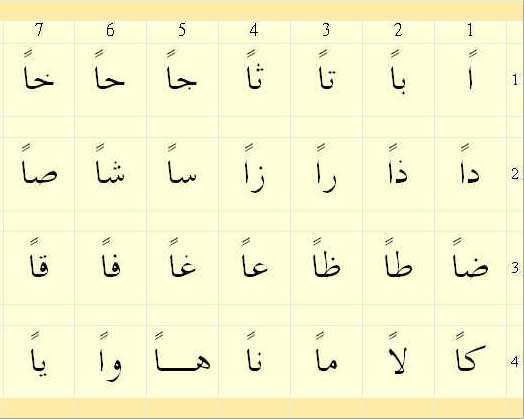 1 2 3 4 5 6 7
1 اً باً تاً ثاً جاً حاً خاً
2 داً ذاً راً زاً ساً شاً صاً
3 ضاً طاً ظاً عاً غاً فاً قاً
4 كاً لاً ماً ناً هـــاً واً ياً